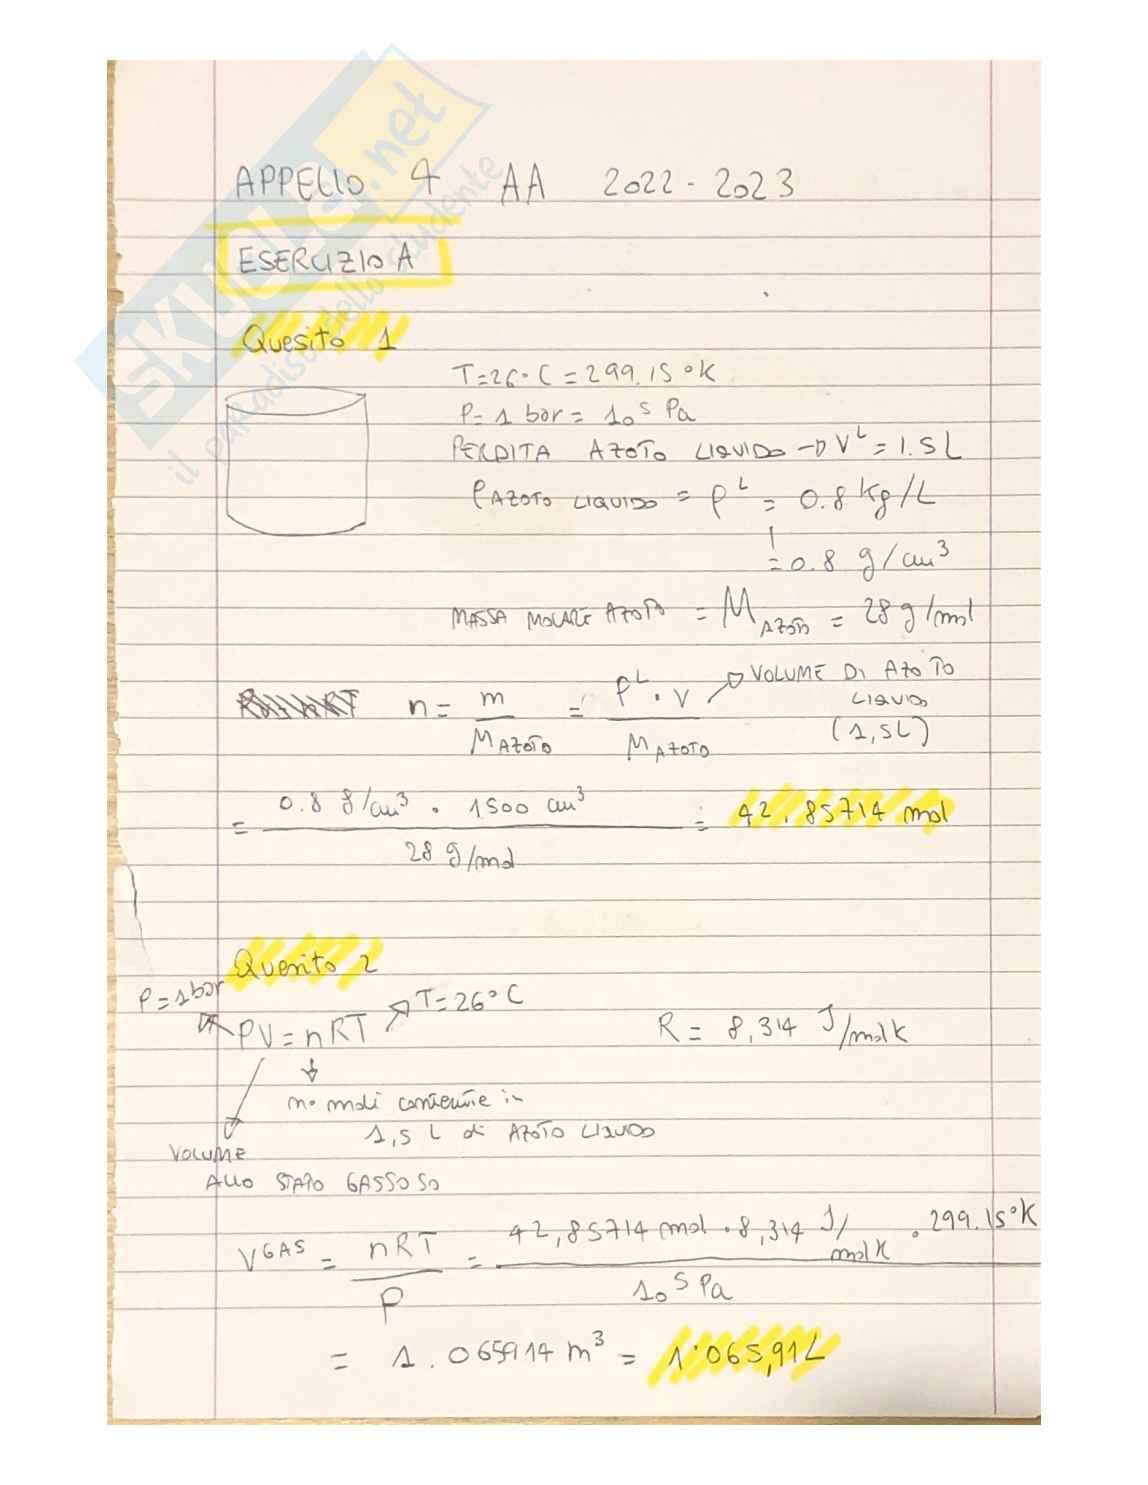 APPELLO 4 AA 2022-2023
ESERCIZIO A
Quesito 1
T=26°C = 299.15 °K
P= 1 bar = 10⁵ Pa
PERDITA AZOTO LIQUIDO → Vᴸ = 1.5L
ρ AZOTO LIQUIDO = ρᴸ = 0.8 Kg/L
= 0.8 g/cm³
MASSA MOLARE AZOTO = M AZOTO = 28 g/mol
n = m / M AZOTO = ρᴸ · V / M AZOTO → VOLUME DI AZOTO
LIQUIDO
(1,5L)
= 0.8 g/cm³ · 1500 cm³ / 28 g/mol = 42.85714 mol
Quesito 2
P=1bar
T=26°C
PV=nRT R = 8,314 J/molK
n° moli contenute in
1,5 L di AZOTO LIQUIDO
VOLUME
ALLO STATO GASSOSO
V GAS = nRT / P = 42,85714 mol · 8,314 J/molK · 299.15°K / 10⁵ Pa
= 1.065914 m³ = 1'065,91L
SKUOLA.net
il paradiso dello studente